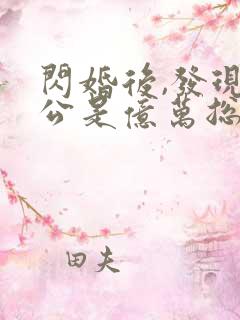 閃婚後,發現
公是億萬
田夫